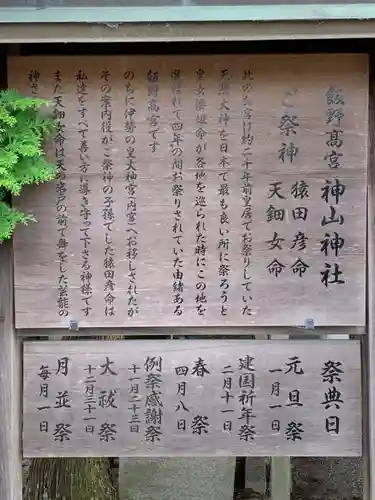 飯野高宮 神山神社
ご祭神 猿田彦命
天鈿女命
此のお宮は約二千年前皇居でお祭りしていた
天照大神を日本で最も良い所に祭ろうと
皇女倭姫命が各地を巡られた時にこの地を
選ばれて四年の間お祭りされていた由緒ある
飯野高宮です
のちに伊勢の皇大神宮(内宮)へお移しされたが
その案内役がご祭神の子孫でした猿田彦命は
私達をすべて善い方に導き守って下さる神様です
また天鈿女命は天の岩戸の前で舞をした芸能の
神さ
祭典日
元旦祭
一月一日
建国祈年祭
二月十一日
春祭
四月八日
例祭感謝祭
十一月二十三日
大祓祭
十二月三十一日
月並祭
毎月一日